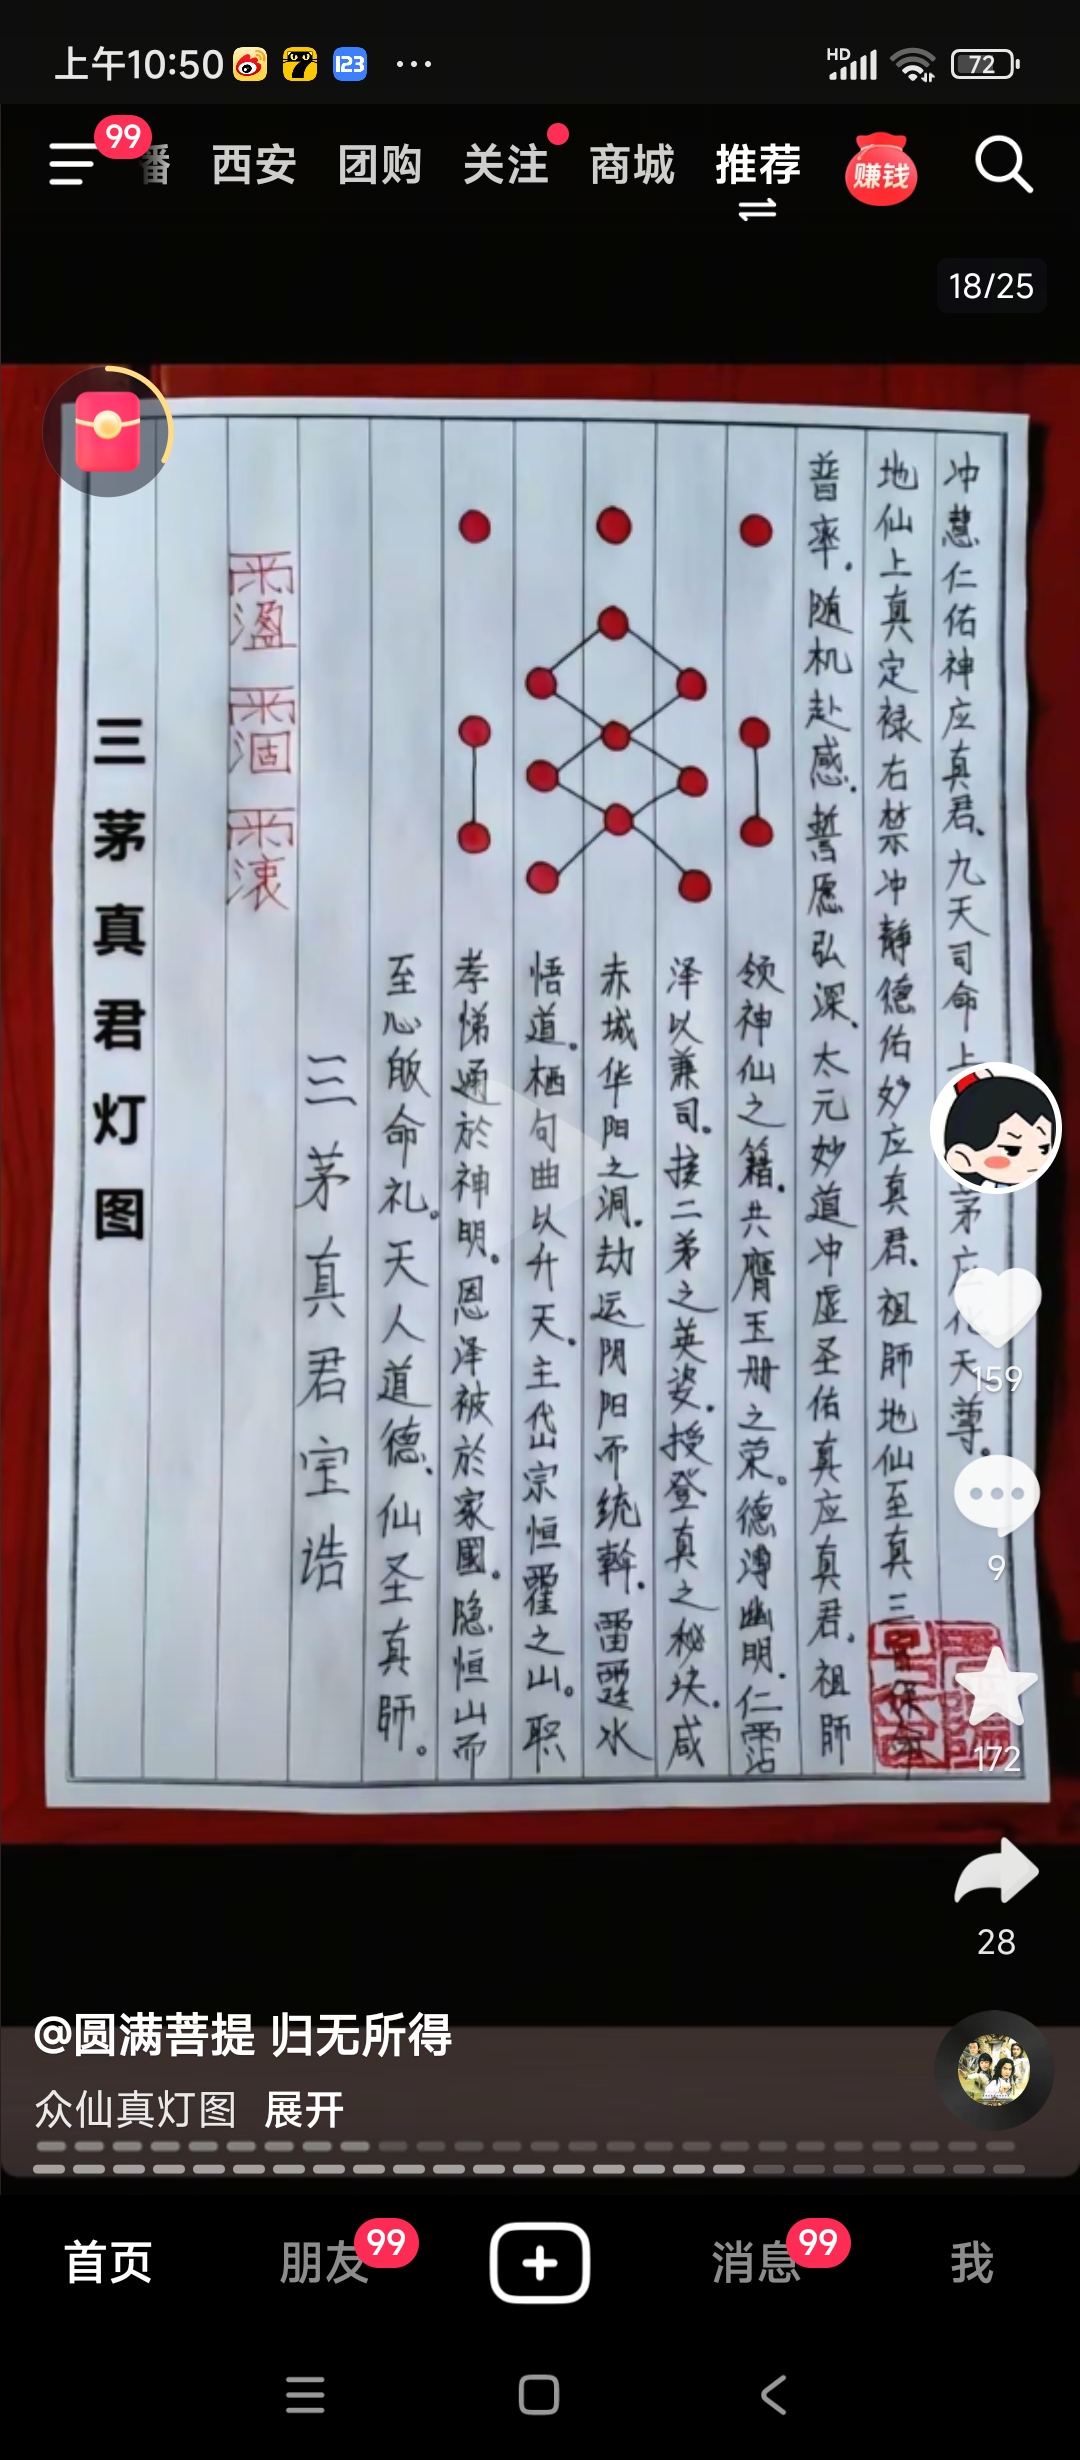 上午10:50 123 ··· HD 72
99 播 西安 团购 关注 商城 推荐 赚钱
18/25
三茅真君灯图
三茅真君宝诰
至心皈命礼。天人道德、仙圣真師。
孝悌通於神明。恩泽被於家國。隐恒山而
悟道。栖句曲以升天。主岱宗恒霍之山。职
赤城华阳之洞。劫运阴阳而统斡。雷霆水
泽以兼司。接二弟之英姿。授登真之秘诀。咸
领神仙之籍。共膺玉册之荣。德溥幽明。仁霑
普率。随机赴感。誓愿弘深、太元妙道冲虚圣佑真应真君。祖師
地仙上真定禄右禁冲静德佑妙应真君。祖師地仙至真三官保命
冲慧仁佑神应真君、九天司命上茅应化天尊。
159
9
172
28
@圆满菩提 归无所得
众仙真灯图 展开
首页 朋友 99 消息 99 我